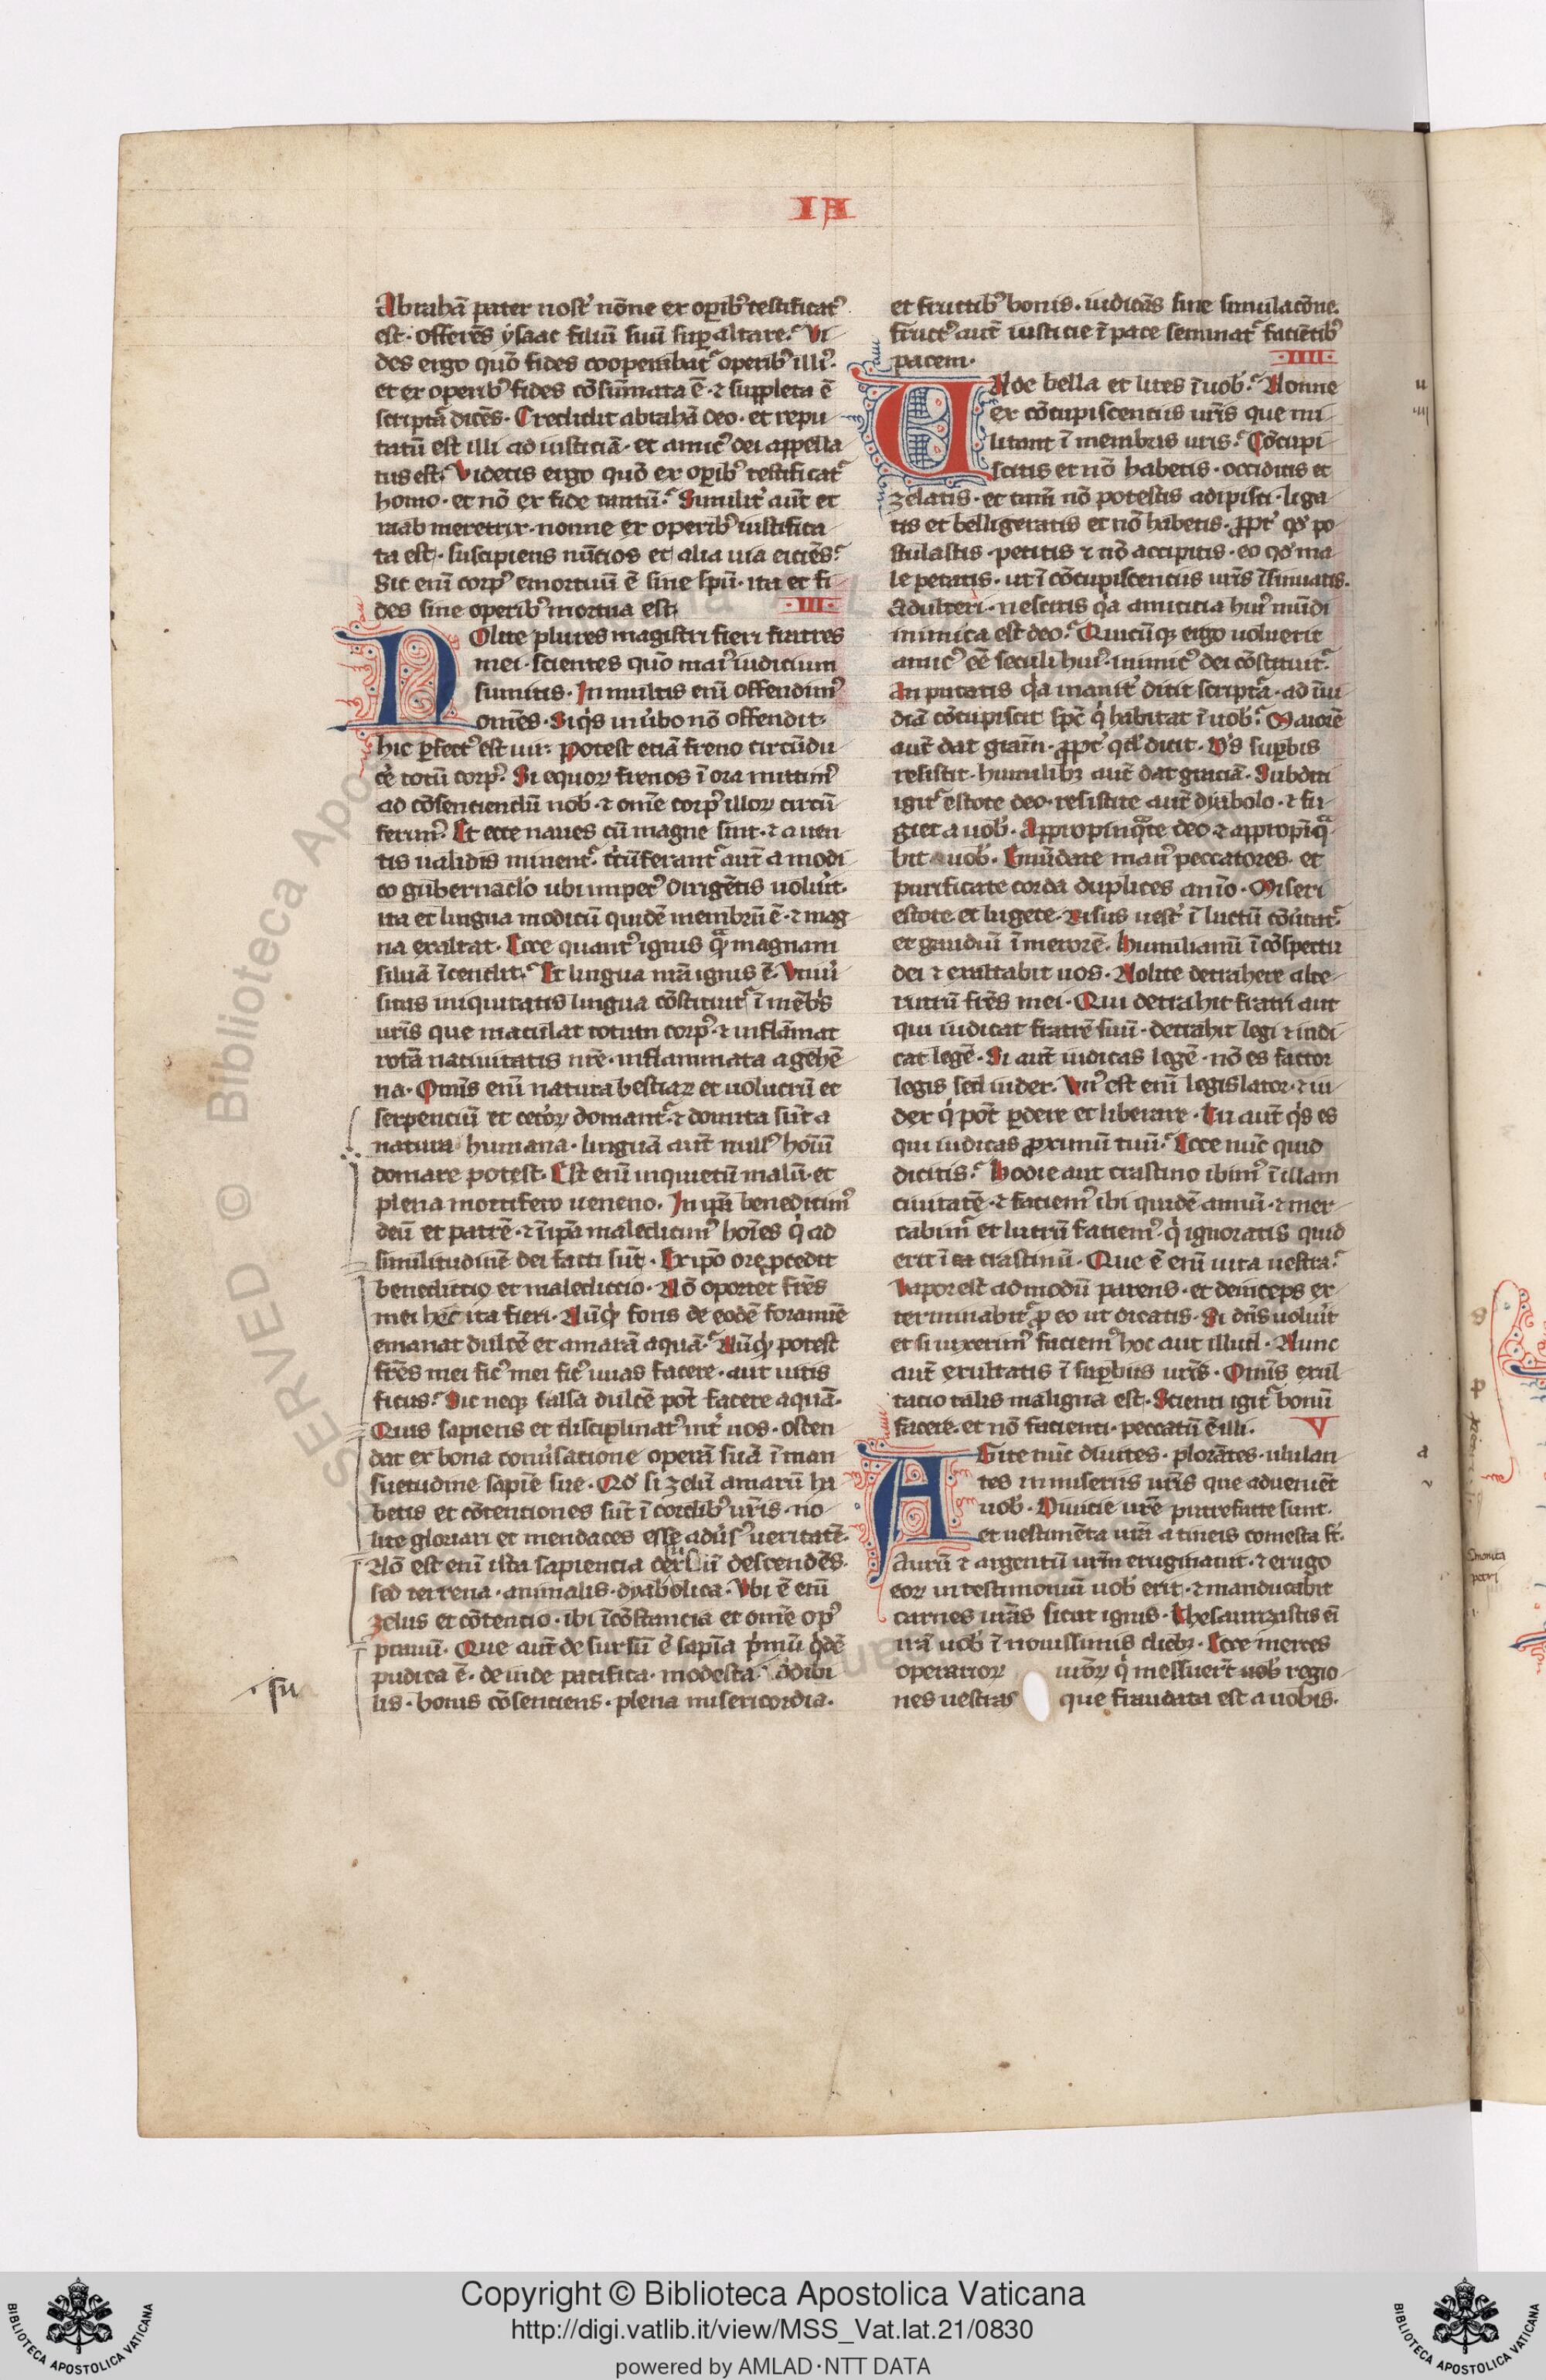 IA
Abrahā pater nost' nōne ex opib' testificat'
est. offerēs ysaac filiū suū sup altare. Vi
des ergo quō fides cooperabat' operib' illi'.
et ex operib' fides cōsūmata ē. ⁊ suppleta ē
scriptā dicēs. Credidit abrahā deo. et repu
tatū est illi ad iusticiā. et amic' dei appella
tus est. Videtis ergo quō ex opib' testificat'
homo. et nō ex fide tantū. Similit' aut̄ et
raab meretrix. nonne ex operib' iustifica
ta est. suscipiens nūcios et alia uia eiciēs.
Sic enī corp' emortuū ē sine spū. ita et fi
des sine operib' mortua est.
.III.
Nolite plures magistri fieri fratres
mei. scientes quō mai' iudicium
sumitis. In multis enī offendim'
omēs. Siq's in ūbo nō offendit.
hic pfect' est uir. Potest etiā freno circūdu
c'e totū corp'. Si equoꝝ frenos ī ora mittim'
ad cōsentiendū nob'. ⁊ omē corp' illoꝝ circū
ferim'. Et ecce naues cū magne sint. ⁊ a uen
tis ualidis minent'. c'cūferant' aut̄ a modi
co gubernaclo ubi impet' dirigētis uolu'it.
ita et lingua modicū quidē membrū ē. ⁊ mag
na exaltat. Ecce quant' ignis qᵃ magnam
siluā īcendit. Et lingua nr̄a ignis ē. Vniu'
sitas iniquitatis lingua cōstituit' ī mēb's
ur̄is que maculat totum corp'. ⁊ inflāmat
rotā natiuitatis nr̄e. inflammata a gehē
na. Omīs enī natura bestiaꝝ et uolucrū et
serpenciū et cet'oꝝ domant'. ⁊ domita sūt a
natura humana. linguā aut̄ null' hoīū
domare potest. Est enī inquietū malū. et
plena mortifero ueneno. In ipā benedicim'
deū et patrē. ⁊ ī ipā maledicim' hoīes q' ad
similitudinē dei facti sūt. Ex ipō ore pcedit
benedictio et maledictio. Nō oportet fr̄es
mei hec ita fieri. Nūqd' fons de eodē foramīe
emanat dulcē et amarā aquā. Nūqd' potest
fr̄es mei fic' mei fic' uuas facere. aut uitis
ficus. Sic neqꝫ salsa dulcē pōt facere aquā.
Quis sapiens et disciplinat' int' uos. osten
dat ex bona conu'satione operā suā ī man
suetudine sapīe sue. Qd' si zelū amarū ha
betis et cōtentiones sūt ī cordib' ur̄is. no
lite gloriari et mendaces esse adūs' ueritatē.
Nō est enī ista sapiencia desursū descendēs.
sed terrena. animalis. dyabolica. Vbi ē enī
zelus et cōtencio. ibi īcōstancia et omē op'
prauū. Que aut̄ de sursū ē sapīa p'mū q'dē
pudica ē. deinde pacifica. modesta. sūadibi
lis. bonis cōsenciens. plena misericordia.
su
et fructib' bonis. iudicās sine simulacōne.
fruct' aut̄ iusticie ī pace seminat' faciētib'
pacem.
.IIII.
Vnde bella et lites ī uob'. Nonne
ex cōcupiscentiis ur̄is que mi
litant ī membris uris. Cōcupi
scitis et nō habetis. occiditis et
zelatis. et tam̄ nō potestis adipisci. liga
tis et belligeratis et nō habetis. ppt' qd' po
stulastis. petitis ⁊ nō accipitis. eo qd' ma
le petatis. ut ī cōcupiscentiis ur̄is īsinuatis.
Adulteri. nescitis q'a amicicia hui' mūdi
inimica est deo. Quicūqꝫ ergo uoluerit
amic' eē seculi hui'. inimic' dei cōstituit'.
An putatis q'a inanit' dicit scriptā. ad īui
diā cōcupiscit spc̄ q' habitat ī uob'. Maiorē
aut̄ dat gr̄am. ppt' qd' dicit. D's supbis
resistit. humilibꝫ aut̄ dat graciā. Subditi
igit' estote deo. resistite aut̄ dyabolo. ⁊ fu
giet a uob'. Appropinqᵃte deo ⁊ appropīqᵃ
bit uob'. Emūdate man' peccatores. et
purificate corda duplices anīo. Miseri
estote. et lugete. Risus uest' ī luctū cōu'tat'.
et gaudiū ī merorē. Humiliamī ī cōspectu
dei ⁊ exaltabit uos. Nolite detrahere alte
rutrū fr̄es mei. Qui detrahit fratri aut
qui iudicat fratrē suū. detrahit legi ⁊ iudi
cat legē. Si aut̄ iudicas legē. nō es factor
legis sed iudex. Vn' est enī legislator. ⁊ iu
dex q' pōt pdere et liberare. Tu aut̄ q's es
qui iudicas pximū tuū. Ecce nūc quid
dicitis. Hodie aut crastino ibim' ī illam
ciuitatē. ⁊ faciem' ibi quidē annū. ⁊ mer
cabim' et lucrū faciem'. q' ignoratis quid
erit ī crastinū. Que ē enī uita uestra.
Vapor est ad modicū parens. et deinceps ex
terminabit' p eo ut dicatis. Si dn̄s uolu'it
et si uixerim' faciem' hoc aut illud. Nunc
aut̄ exultatis ī supbiis ur̄is. Omīs exul
tacio talis maligna est. Scienti igit' bonū
facere. et nō facienti. peccatū ē illi.
V
Agite nūc diuites. plorātes. ululan
tes in miseriis ur̄is que adueniēt
uob'. Diuicie ur̄e putrefacte sunt.
et uestimēta ur̄a a tineis comesta st̄.
Aurū ⁊ argentū ur̄m eruginauit. ⁊ erugo
eoꝝ in testimoniū uob' erit. ⁊ manducabit
carnes ur̄as sicut ignis. Thesaurizastis eī
irā uob' ī nouissimis diebꝫ. Ecce merces
operarioꝝ ur̄oꝝ q' messuer̄t uob' regio
nes uestras que fraudata est a uobis.
Copyright © Biblioteca Apostolica Vaticana
http://digi.vatlib.it/view/MSS_Vat.lat.21/0830
powered by AMLAD·NTT DATA
BIBLIOTECA APOSTOLICA VATICANA
BIBLIOTECA APOSTOLICA VATICANA